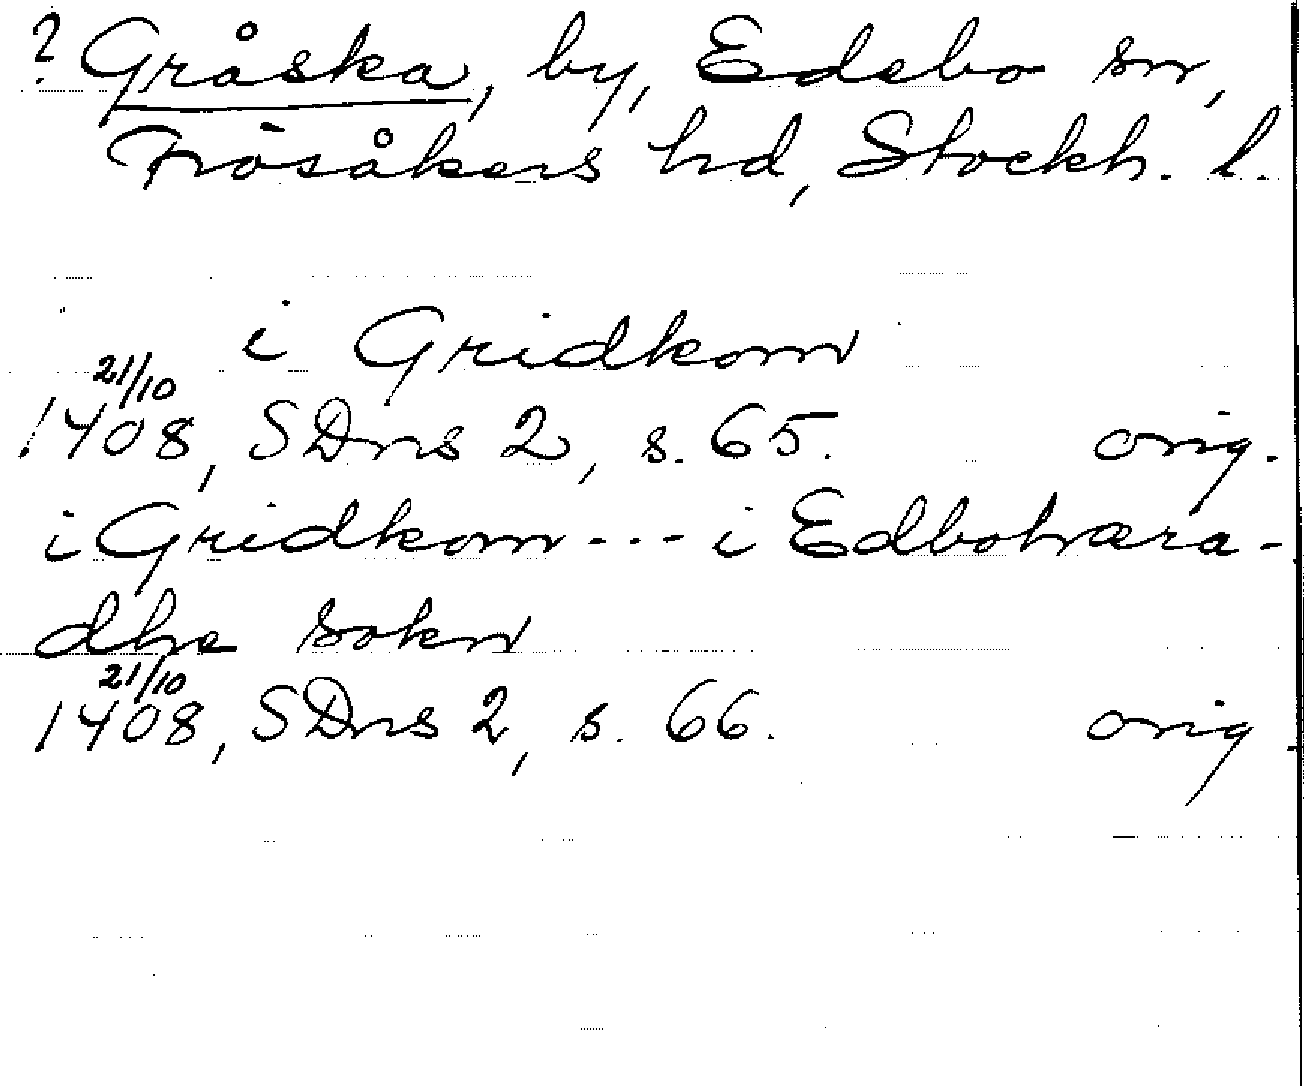 ? Gråska, by, Edebo sn,
Frösåkers hd, Stockh. l.
i Gridkom
21/10
1408, SDns 2, s. 65. orig.
i Gridkom --- i Edbohæra-
dhe sokn
21/10
1408, SDns 2, s. 66. orig